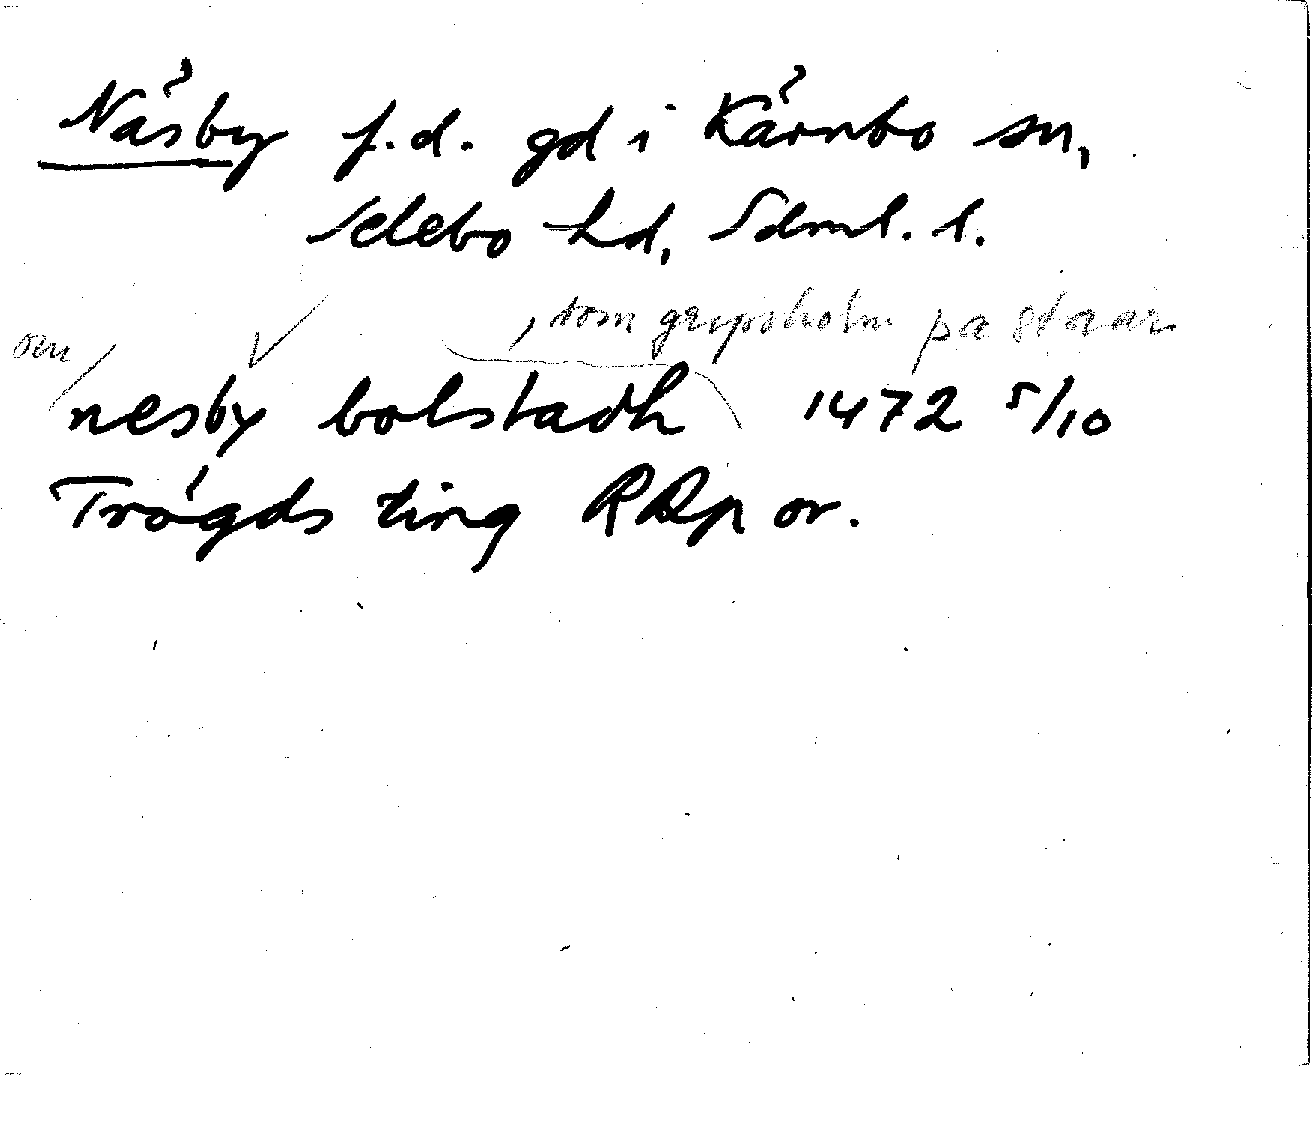 Näsby f.d. gd i Kärnbo sn,
Selebo hd, Sdml. l.
, som gripsholm pa staar
om
nesby bolstadh 1472 5/10
Trögds ting RAp or.